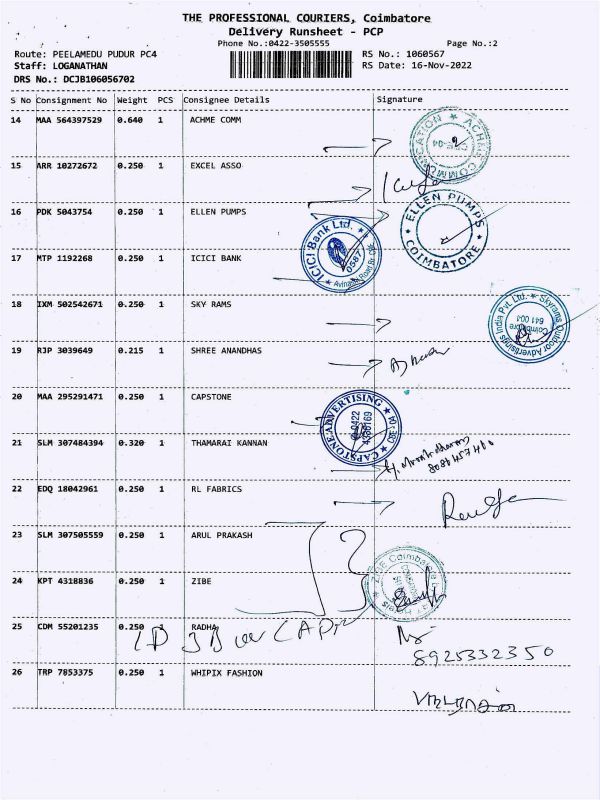 THE PROFESSIONAL COURIERS, Coimbatore
Delivery Runsheet - PCP
Phone No.:0422-3505555 Page No.:2
Route: PEELAMEDU PUDUR PC4 RS No.: 1060567
Staff: LOGANATHAN RS Date: 16-Nov-2022
DRS No.: DCJB106056702
S No Consignment No Weight PCS Consignee Details Signature
14 MAA 564397529 0.640 1 ACHME COMM
ACHME COMMUNICATION
15 ARR 10272672 0.250 1 EXCEL ASSO
16 PDK 5043754 0.250 1 ELLEN PUMPS
ELLEN PUMPS
COIMBATORE
17 MTP 1192268 0.250 1 ICICI BANK
ICICI Bank Ltd.
0587
18 IXM 502542671 0.250 1 SKY RAMS
Skyrams Outdoor Advertisings India Pvt. Ltd.
Coimbatore
641 004
19 RJP 3039649 0.215 1 SHREE ANANDHAS
20 MAA 295291471 0.250 1 CAPSTONE
CAPSTONE ADVERTISING
0422
21 SLM 307484394 0.320 1 THAMARAI KANNAN
22 EDQ 18042961 0.250 1 RL FABRICS
23 SLM 307505559 0.250 1 ARUL PRAKASH
24 KPT 4318836 0.250 1 ZIBE
Coimbatore
25 CDM 55201235 0.250 1 RADHA
8925332350
26 TRP 7853375 0.250 1 WHIPIX FASHION